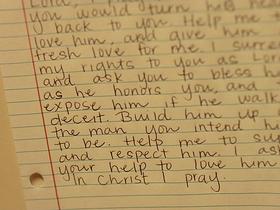 Lord, I pray
you would turn his heart
back to you. Help me
love him, and give him
fresh love for me. I surre
my rights to you as Lord
and ask you to bless h
as he honors you, and
expose him if he walk
deceit. Build him up
the man you intend h
to be. Help me to su
and respect him. I as
your help to love him
In Christ I pray.